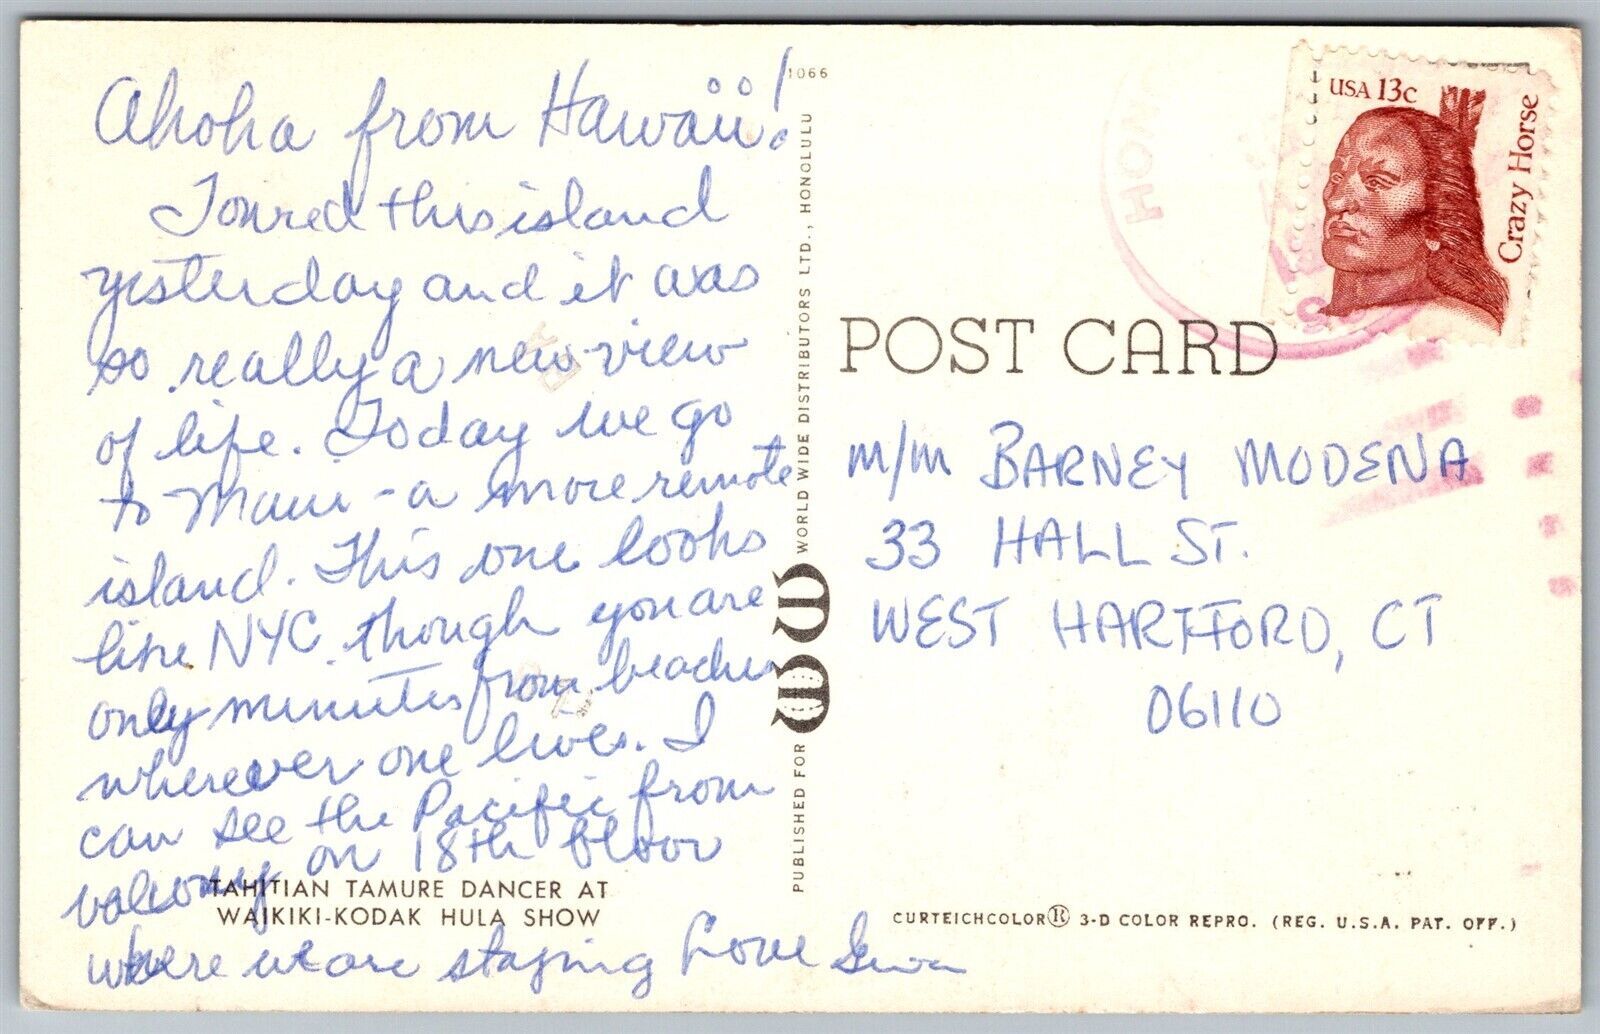 Ahoha from Hawaii!
Toured this island
yesterday and it was
so really a new view
of life. Today we go
to Maui - a more remote
island. This one looks
like NYC though you are
only minutes from beaches
wherever one lives. I
can see the Pacific from
valcony on 18th floor
where we are staying Love
TAHITIAN TAMURE DANCER AT
WAIKIKI-KODAK HULA SHOW
1066
PUBLISHED FOR WW WORLD WIDE DISTRIBUTORS LTD., HONOLULU
POST CARD
USA 13c
Crazy Horse
HON
M/M BARNEY MODENA
33 HALL ST.
WEST HARTFORD, CT
06110
CURTEICHCOLOR® 3-D COLOR REPRO. (REG. U.S.A. PAT. OFF.)